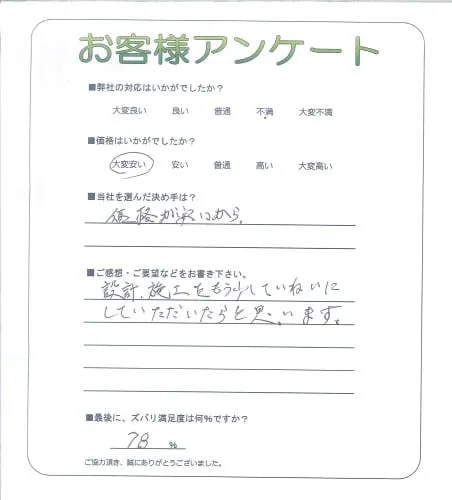 お客様アンケート
■弊社の対応はいかがでしたか?
大変良い 良い 普通 不満 大変不満
■価格はいかがでしたか?
大変安い 安い 普通 高い 大変高い
■当社を選んだ決め手は?
価格が安いから。
■ご感想・ご要望などをお書き下さい。
設計、施工をもう少していねいに
していただいたらと思います。
■最後に、ズバリ満足度は何%ですか?
78 %
ご協力頂き、誠にありがとうございました。